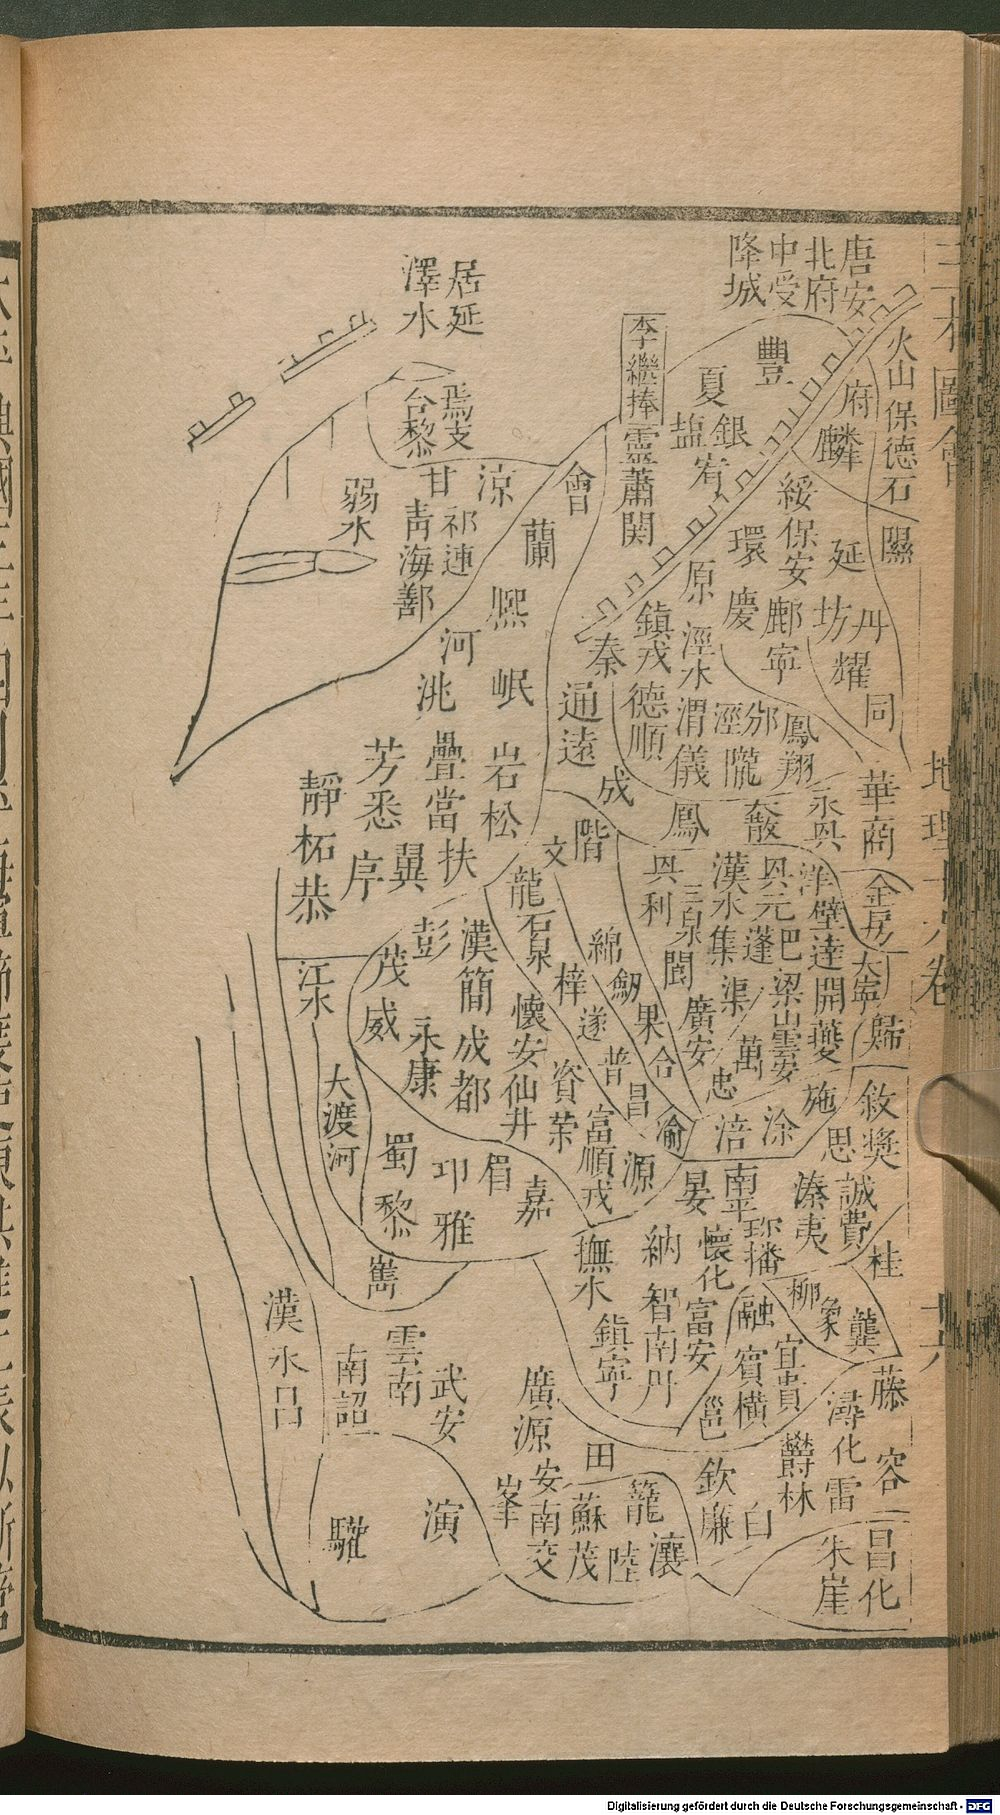 三才圖會
地理
卷
唐安
北府
中受
降城
居延
澤水
火山保德石隰
豐
府
麟
夏
銀
鹽宥
李繼捧
靈蕭関
焉支
合黎
弱水
甘
涼
會
蘭
青海鄯
祁連
綏保安
延
丹
坊
環
慶
鄜寧
原
涇水
鎮戎德順
秦
熙
河
洮
岷
通遠
耀
同
渭儀
涇
隴
邠
鳳翔
芳悉
疊當
岩松
成
鳳
永興
華商
靜柘恭
序
翼
扶
文
階
興利
三泉
漢水集
興元
洋
壁達開夔
金房
大寧
歸
龍
石泉
彭
漢簡成都
茂威
永康
江水
綿
梓
劒
果合
閬
蓬
巴
渠
梁山雲安
廣安
萬
忠
遂
普
昌
懷安仙井
資
榮
富順戎
渝
涪
施
敘獎
思
大渡河
蜀
黎
邛雅
眉
嘉
源
南平
溱夷
誠
費
桂
撫水
納
懷化
播
智南丹
富安
融
柳
象
龔
雲南
南詔
武安
鎮寧
賓橫
宜貴
邕
藤
潯化雷
容
鬱林
廣源
田
欽廉
白
演
峯
安南交
蘇茂
籠
陸
瀼
驩
朱崖
昌化
Digitalisierung gefördert durch die Deutsche Forschungsgemeinschaft - DFG